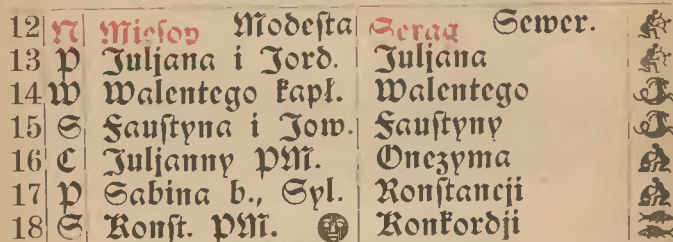 12 N Miesop Modesta Serag Sewer.
13 P Juljana i Jord. Juljana
14 W Walentego kapł. Walentego
15 S Faustyna i Jow. Faustyny
16 C Juljanny PM. Onezyma
17 P Sabina b., Syl. Konstancji
18 S Konst. PM. Konkordji